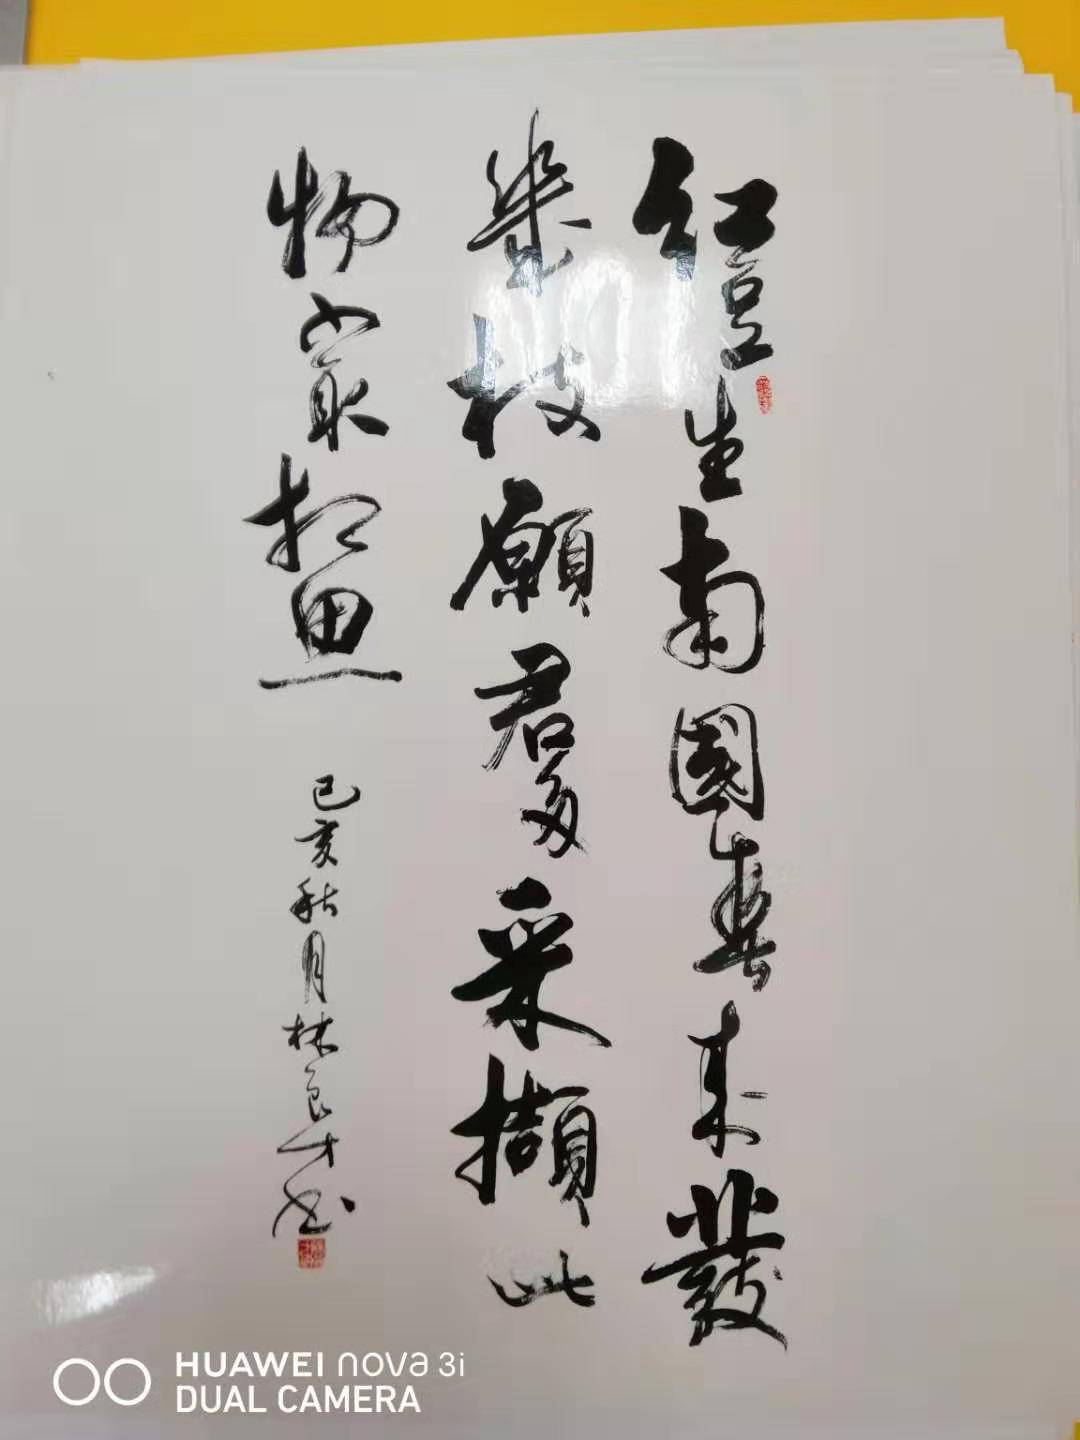 红豆生南國春来發
幾枝願君多采擷此
物最相思
己亥秋月林良才书
HUAWEI nova 3i
DUAL CAMERA